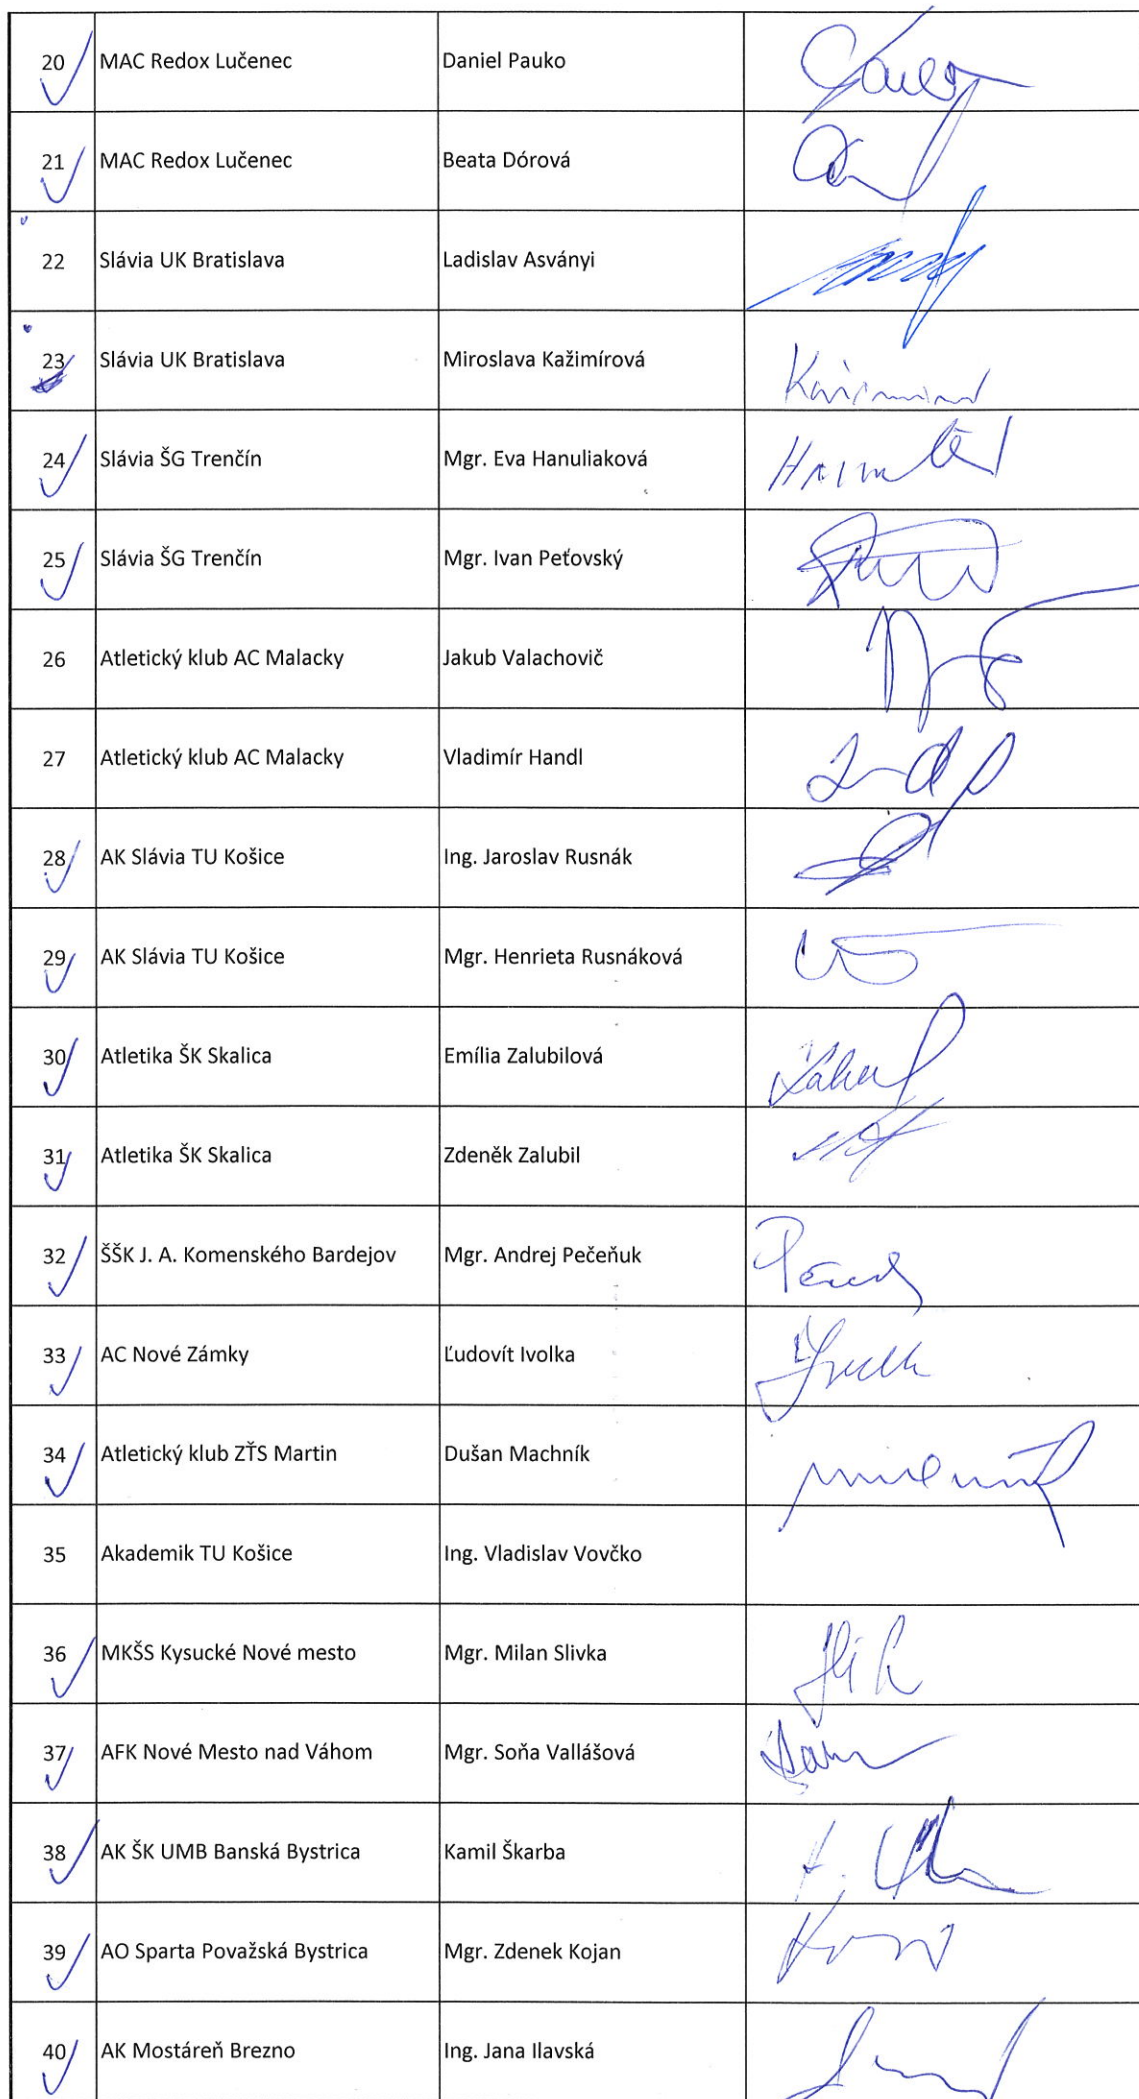 20 MAC Redox Lučenec Daniel Pauko
21 MAC Redox Lučenec Beata Dórová
22 Slávia UK Bratislava Ladislav Asványi
23 Slávia UK Bratislava Miroslava Kažimírová
24 Slávia ŠG Trenčín Mgr. Eva Hanuliaková
25 Slávia ŠG Trenčín Mgr. Ivan Peťovský
26 Atletický klub AC Malacky Jakub Valachovič
27 Atletický klub AC Malacky Vladimír Handl
28 AK Slávia TU Košice Ing. Jaroslav Rusnák
29 AK Slávia TU Košice Mgr. Henrieta Rusnáková
30 Atletika ŠK Skalica Emília Zalubilová
31 Atletika ŠK Skalica Zdeněk Zalubil
32 ŠŠK J. A. Komenského Bardejov Mgr. Andrej Pečeňuk
33 AC Nové Zámky Ľudovít Ivolka
34 Atletický klub ZŤS Martin Dušan Machník
35 Akademik TU Košice Ing. Vladislav Vovčko
36 MKŠS Kysucké Nové mesto Mgr. Milan Slivka
37 AFK Nové Mesto nad Váhom Mgr. Soňa Vallášová
38 AK ŠK UMB Banská Bystrica Kamil Škarba
39 AO Sparta Považská Bystrica Mgr. Zdenek Kojan
40 AK Mostáreň Brezno Ing. Jana Ilavská